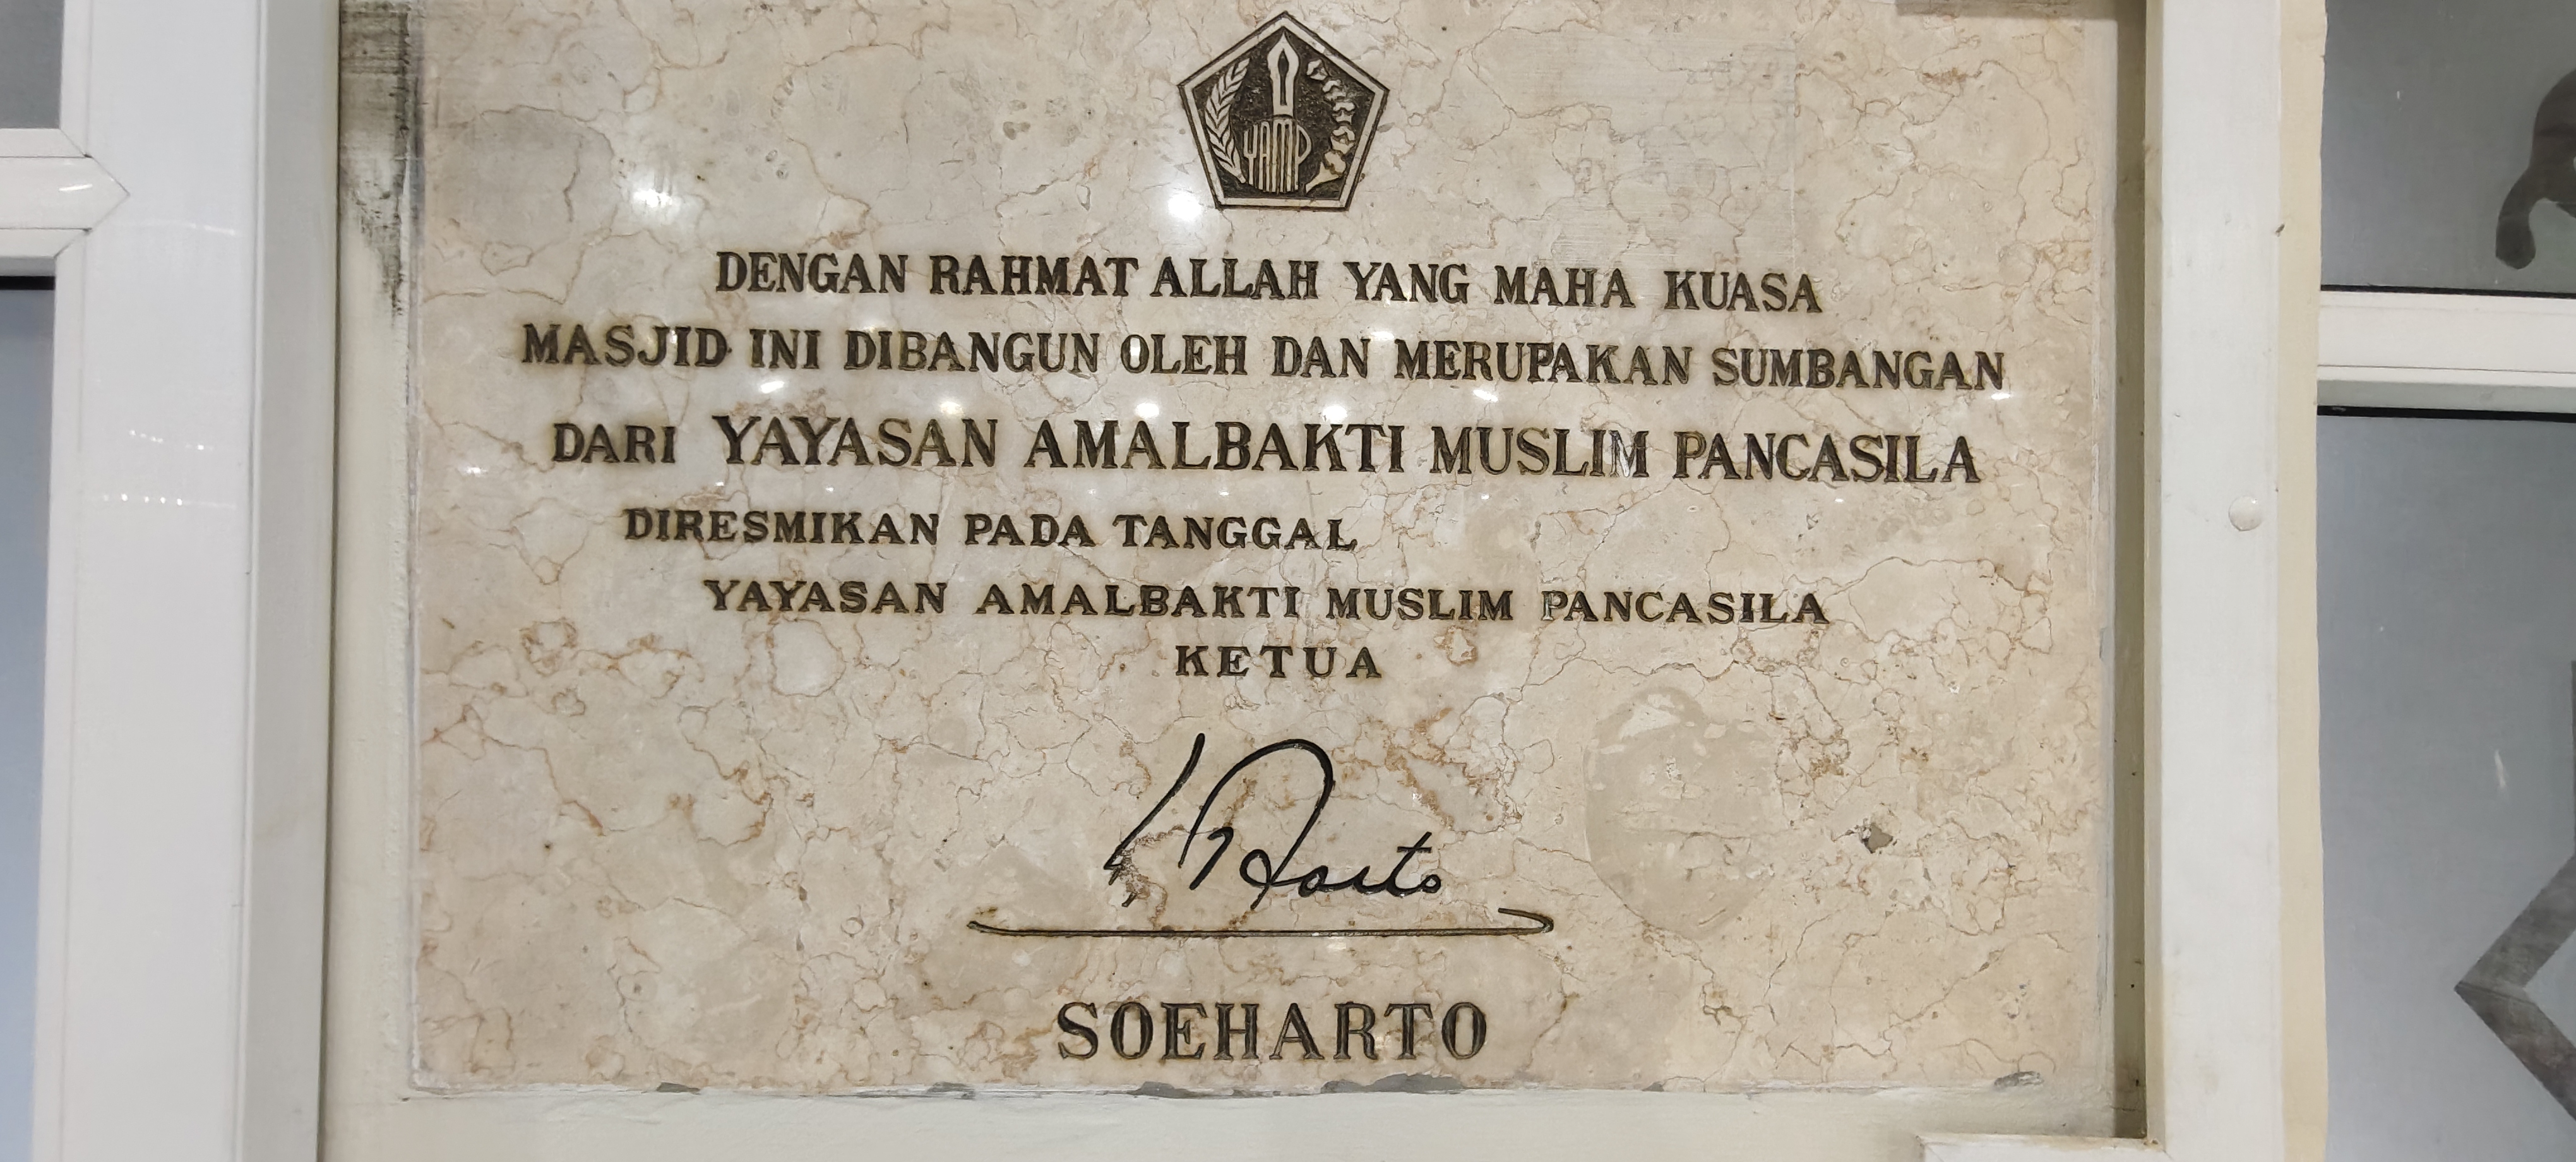 YAMP
DENGAN RAHMAT ALLAH YANG MAHA KUASA
MASJID INI DIBANGUN OLEH DAN MERUPAKAN SUMBANGAN
DARI YAYASAN AMALBAKTI MUSLIM PANCASILA
DIRESMIKAN PADA TANGGAL
YAYASAN AMALBAKTI MUSLIM PANCASILA
KETUA
SOEHARTO